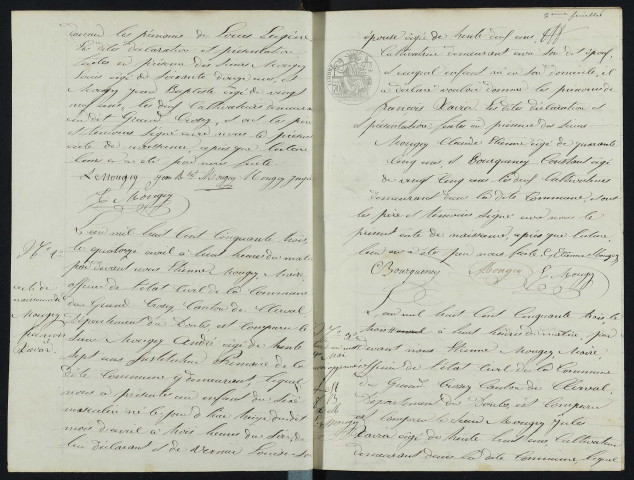 donner les prénoms de Louis Eugène
les dites déclaration et présentation
faites en présence des sieurs Mougey
Louis âgé de soixante douze ans, et
Mougey Jean Baptiste âgé de vingt
ans, les deux Cultivateurs demeurant
au dit Grand Crosey, et ont les père
et témoins signé avec nous le présent
acte de naissance, après que lecture
leur en a été par nous faite
L. Mougey Jean Bte Mougey Mougey
E. Mougey
L'an mil huit cent cinquante trois,
le quatorze avril à huit heures du matin
par devant nous Etienne Mougey Maire,
officier de l'état civil de la Commune
du Grand Crosey Canton de Clerval
Département du Doubs, est comparu le
sieur Mougey André âgé de trente
sept ans Instituteur Primaire de la
dite Commune y demeurant, lequel
nous a présenté un enfant du sexe
masculin né le
mois d'avril à trois heures du soir, de
lui déclarant et de Louise
acte de
naissance de
Mougey
françois
Xavier
2me feuillet
épouse âgée de trente deux ans
Cultivatrice demeurant avec son dit époux,
et auquel enfant né en son domicile, il
a déclaré vouloir donner les prénoms de
françois Xavier les dites déclaration et
et présentation faites en présence des sieurs
Mougey Claude Etienne âgé de quarante
cinq ans, et Bourquency Constant âgé
de vingt cinq ans les deux Cultivateurs
demeurant dans la dite Commune, et ont
les père et témoins signé avec nous le
présent acte de naissance, après que lecture
leur en a été par nous faite. C. Etienne Mougey
C Bourquency Mougey E. Mougey
L'an mil huit cent cinquante trois le
à huit heures du matin, par
devant nous Etienne Mougey, Maire
officier de l'état civil de la Commune
du Grand Crosey Canton de Clerval,
Département du Doubs, est comparu
le sieur Mougey Jules
Xavier âgé de trente huit ans, Cultivateur
demeurant dans la dite Commune, lequel